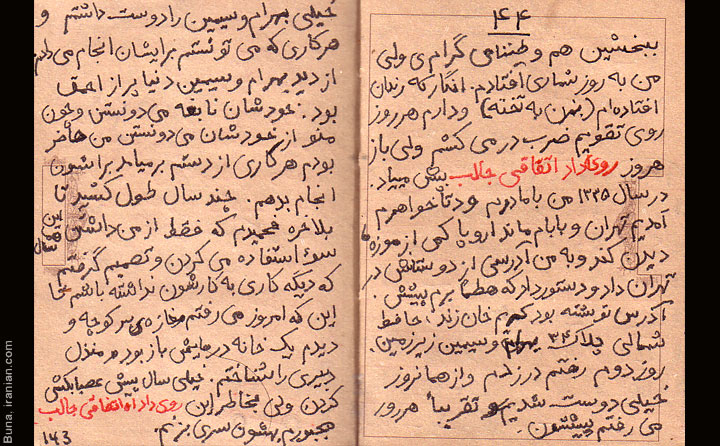 ۴۴
ببخشین هم وطنای گرامی ولی
من به روز شماری افتادم. انگار که زندان
افتاده‌ام (بزنن به تخته) و دارم هر روز
روی تقویم ضرب در می کشم ولی باز
هر روز روی‌داد اتفاقی جالب پیش میاد.
در سال ۱۳۳۵ من با مادرم و دتا خواهرم
آمدیم تهران و بابام ماند اروپا کمی از موزه ها
دیدن کند و به من آدرسی از دوستانش در
تهران داد و دستور داد که حتماً برم پیشش.
آدرس نوشته بود کریم خان زند، حافظ
شمالی پلاک ۳۴ بهرام و سیمین زیر زمین.
روز دوم رفتم در زدم و از همانروز
خیلی دوست شدیم و تقریباً هر روز
می رفتم پیششون.
خیلی بهرام و سیمین را دوست داشتم و
هر کاری که می تونستم برایشان انجام می دادم
از دید بهرام و سیمین دنیا پر از احمق
بود. خودشان نابغه می دونستن و چون
منو از خودشان می دونستن من حاضر
بودم هر کاری از دستم برمیاد براشون
انجام بدهم. چند سال طول کشید تا
بلاخره فهمیدم که فقط از من داشتن
این ۵ سال
سوء استفاده می کردن و تصمیم گرفتم
که دیگه کاری به کارشون نداشته باشم تا
این که امروز می رفتم مغازه سر کوچه و
دیدم یک خانه در هایش باز بود و منزل
دبیری را شناختم. خیلی سال پیش عصبانیم
کردن ولی بخاطر این روی داد اتفاقی جالب
مجبورم بهشون سری بزنم.
۱۴۳
Buna, iranian.com